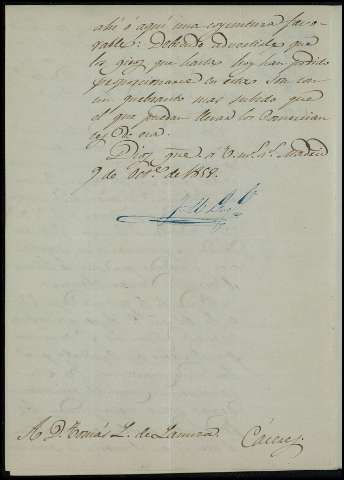 ahi ó aquí una coyuntura favo-
rable: Debiendo advertirle que
los giros que hasta hoy han podido
proporcionarse en esta son con
un quebranto mas subido que
el que puedan llevar los Comercian
tes de esa.
Dios gue. á V. m. a. Madrid
9 de de 1858.
A D. Tomás L. de Lamuza. Cáceres.